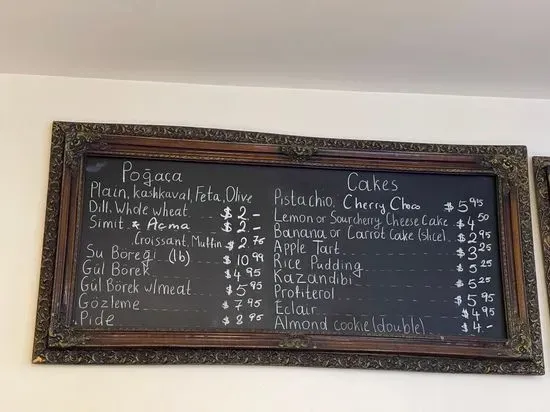 Poğaça
Plain, kashkaval, Feta, Olive
Dill, Whole wheat $2-
Simit & Açma $2-
Croissant, Muffin $2.75
Su Böreği (lb) $10.99
Gül Börek $4.95
Gül Börek w/meat $5.95
Gözleme $7.95
Pide $8.95
Cakes
Pistachio, Cherry Choco $5.95
Lemon or Sourcherry Cheese Cake $4.50
Banana or Carrot Cake (slice) $2.95
Apple Tart $3.25
Rice Pudding $5.25
Kazandibi $5.25
Profiterol $5.95
Eclair $4.95
Almond cookie (double) $4-